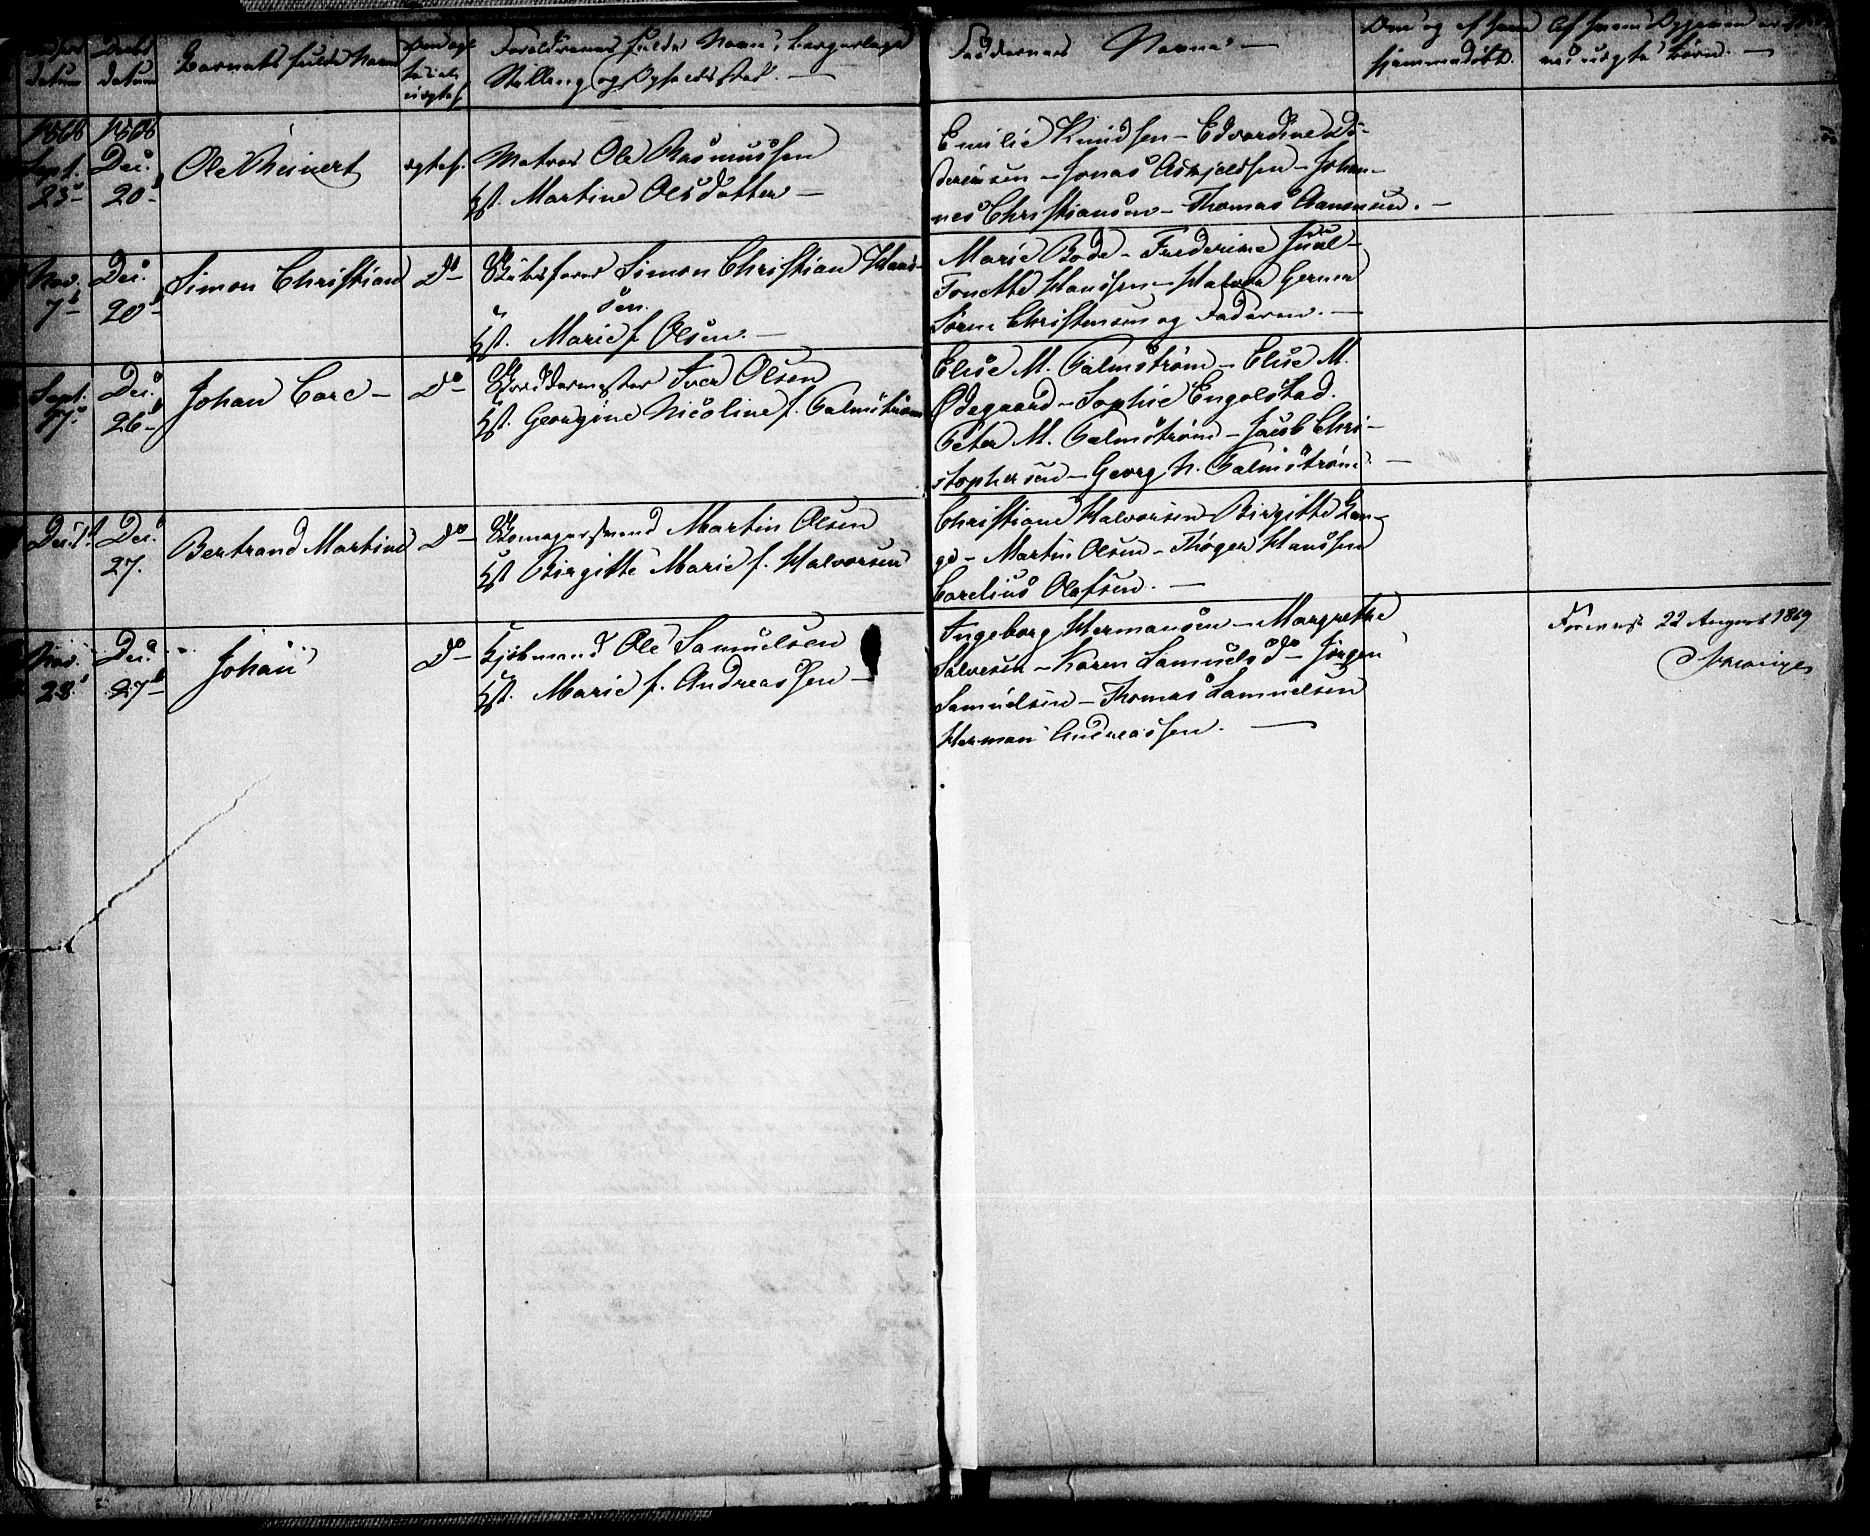 datum
Daabs datum
Barnets fulde Navn
Forældrenes fulde Navne, Borgerlige
Stilling og Opholdssted. —
Faddernes Navne —
Om og af hvem
hjemmedøbt.
uægte Børn. —
1868
Sept.
25
1868
Dec.
20
Ole Reinert
ægtef.
Matros Ole Rasmussen
Hst. Martine Olsdatter —
Emilie Knudsen — Edvardine
— Jonas Askjeldsen — Johan-
nes Christiansen — Thomas Aanensen. —
Nov.
7
Dec.
20
Simon Christian
Do —
Simon Christian Hans-
sen.
Hst. Marie f. Olsen. —
Marie Bode — Frederikke Juul —
Tonette Hanssen —
Sören Christensen og Faderen. —
Sept.
17
Dec.
26
Johan Care —
Do —
Iver Olsen
Hst. Georgine Nicoline f. Palmström
Elise M. Palmström — Elise M.
Ødegaard — Sophie Engolstad.
Peter M. Palmström — Jacob Chri-
stophersen — Georg N. Palmström. —
Dec. 1
Dec.
27.
Bertrand Martine
Do —
Martin Olsen
Hst Birgitte Marie f. Halvorsen
Christiane Halvorsen — Birgitte Lan-
ge — Martin Olsen — Thöger Hanssen
Carelius Olafsen. —
Nov.
28
Dec.
27
Johan
Do —
Kjöbmand Ole Samuelsen
Hst. Marie f. Andreassen —
Ingeborg Hermansen — Margrethe
Salvesen — Karen Samuelsd — Jörgen
Samuelsen — Thomas Samuelsen
Herman Andreassen. —
22 August 1869